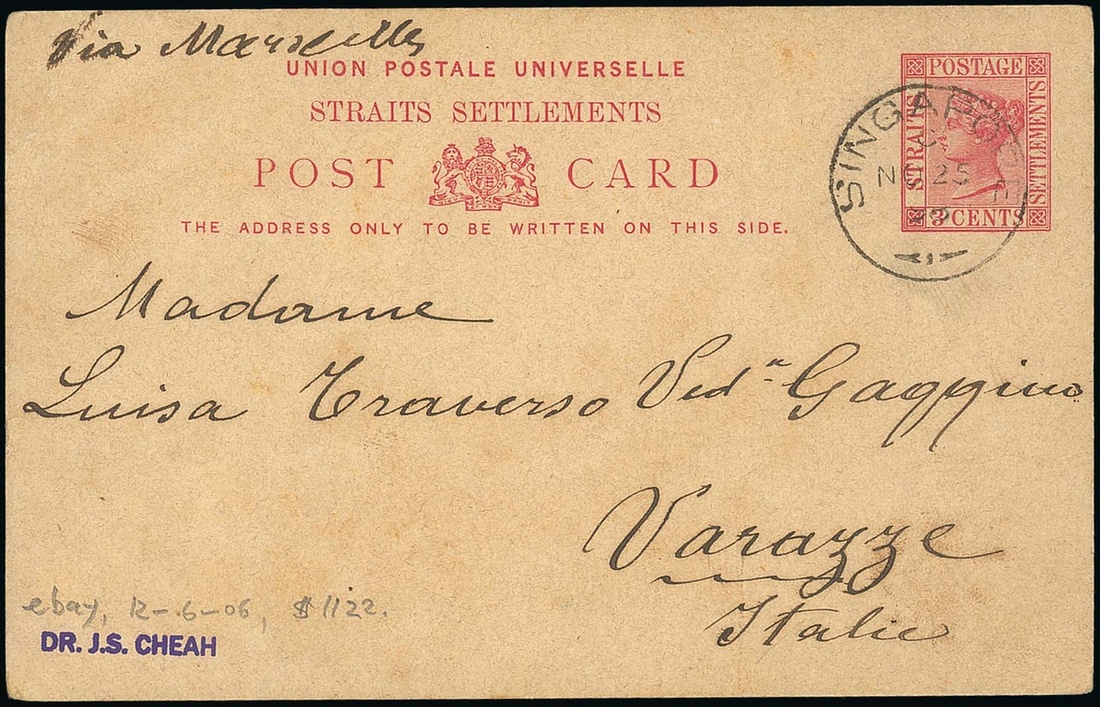 Via Marseille
UNION POSTALE UNIVERSELLE
STRAITS SETTLEMENTS
POST CARD
THE ADDRESS ONLY TO BE WRITTEN ON THIS SIDE.
POSTAGE
STRAITS
SETTLEMENTS
3 CENTS
SINGAPORE
C
NO 25
Madame
Luisa Traverso Ved.ª Gaggino
Varazze
Italie
ebay, 12-6-06, $1122.
DR. J.S. CHEAH